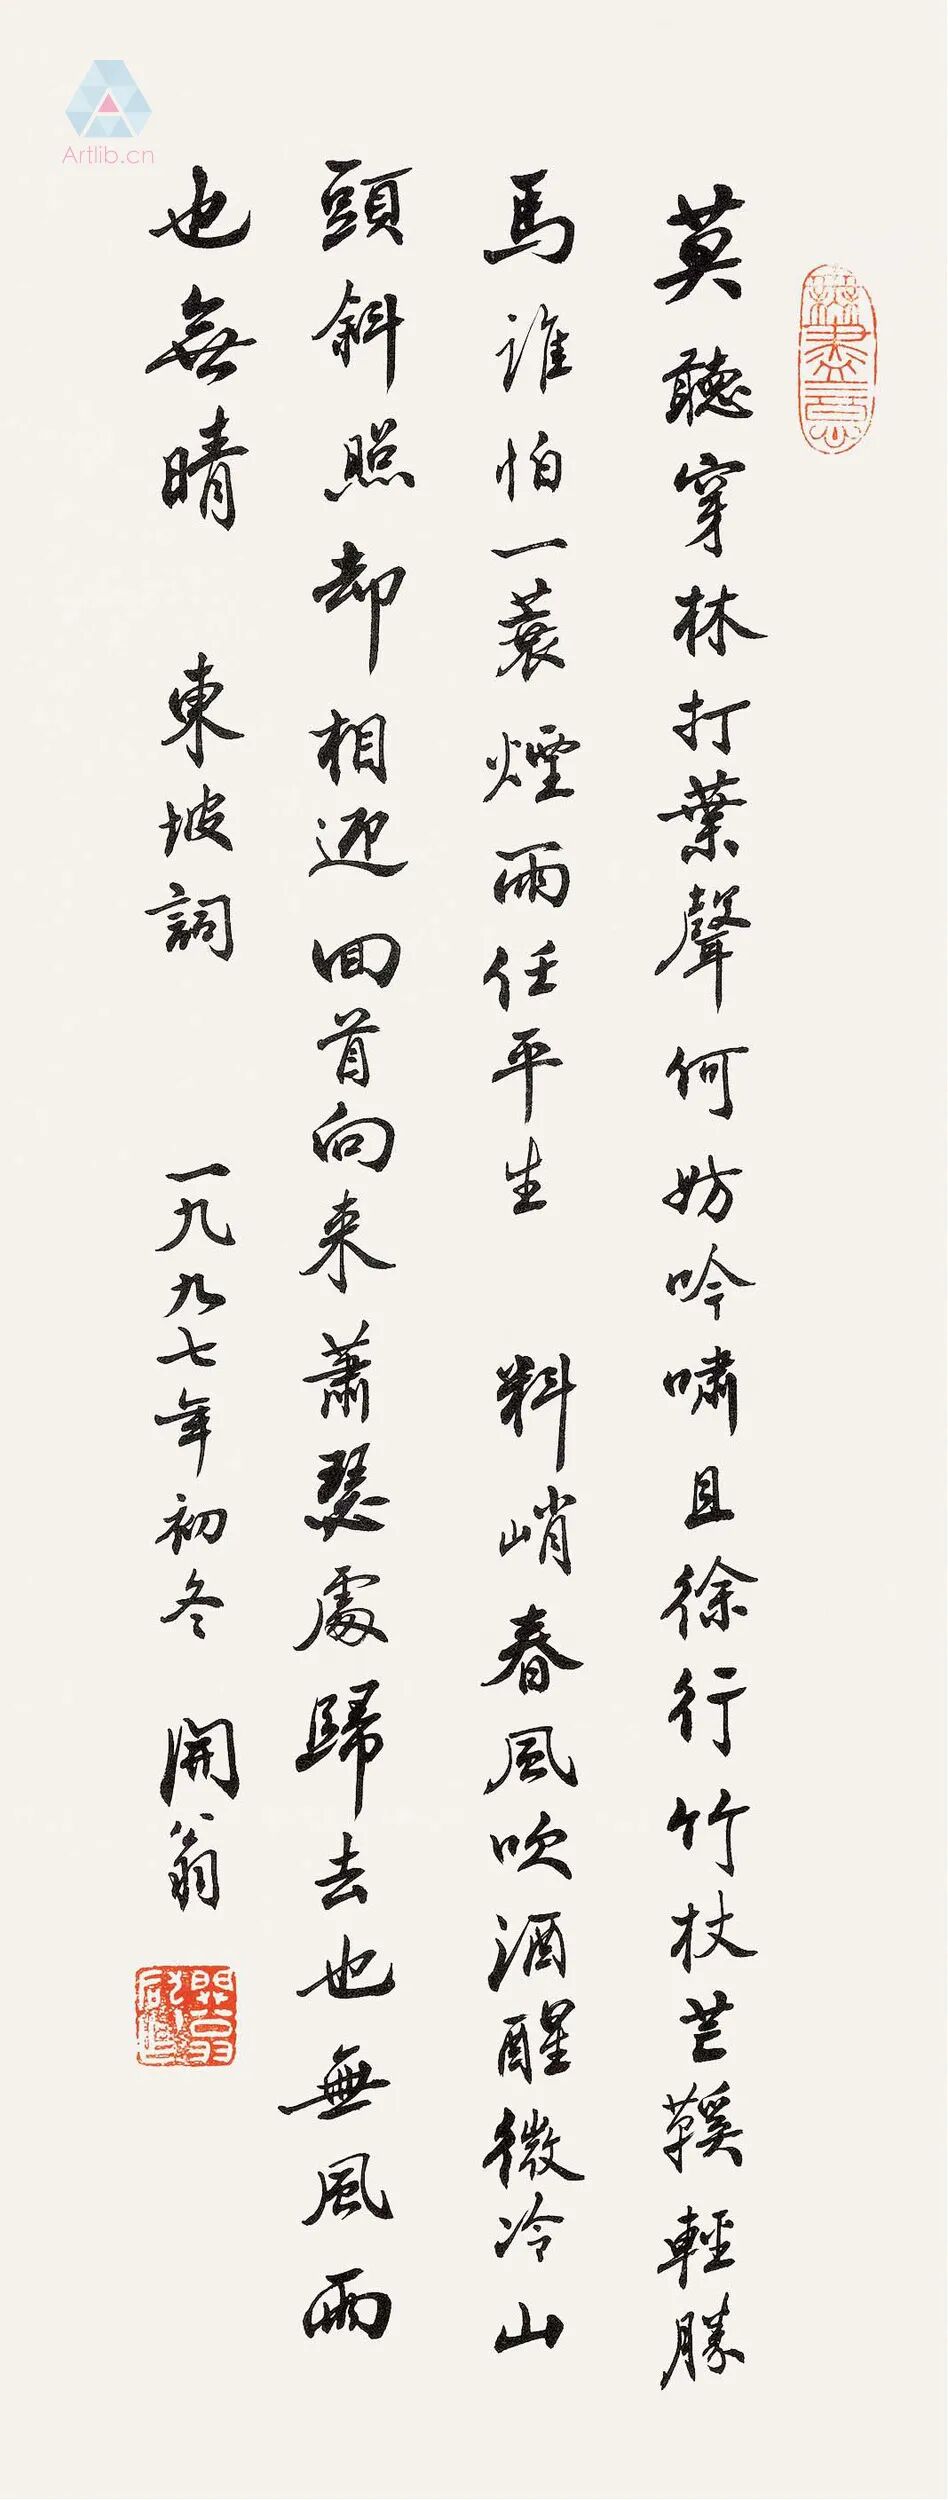 莫聽穿林打葉聲何妨吟嘯且徐行竹杖芒鞵輕勝
馬誰怕一蓑煙雨任平生 料峭春風吹酒醒微冷山
頭斜照却相迎回首向来蕭瑟處歸去也無風雨
也無晴 東坡詞 一九九七年初冬 開翁
Artlib.cn